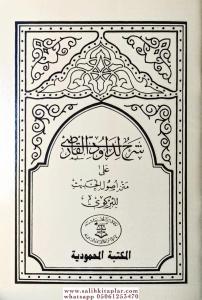 شرح لداود القارصي
على
متن أصول الحديث
للبركوي
المكتبة المحمودية
www.salihkitaplar.com
whatsapp 05061255470